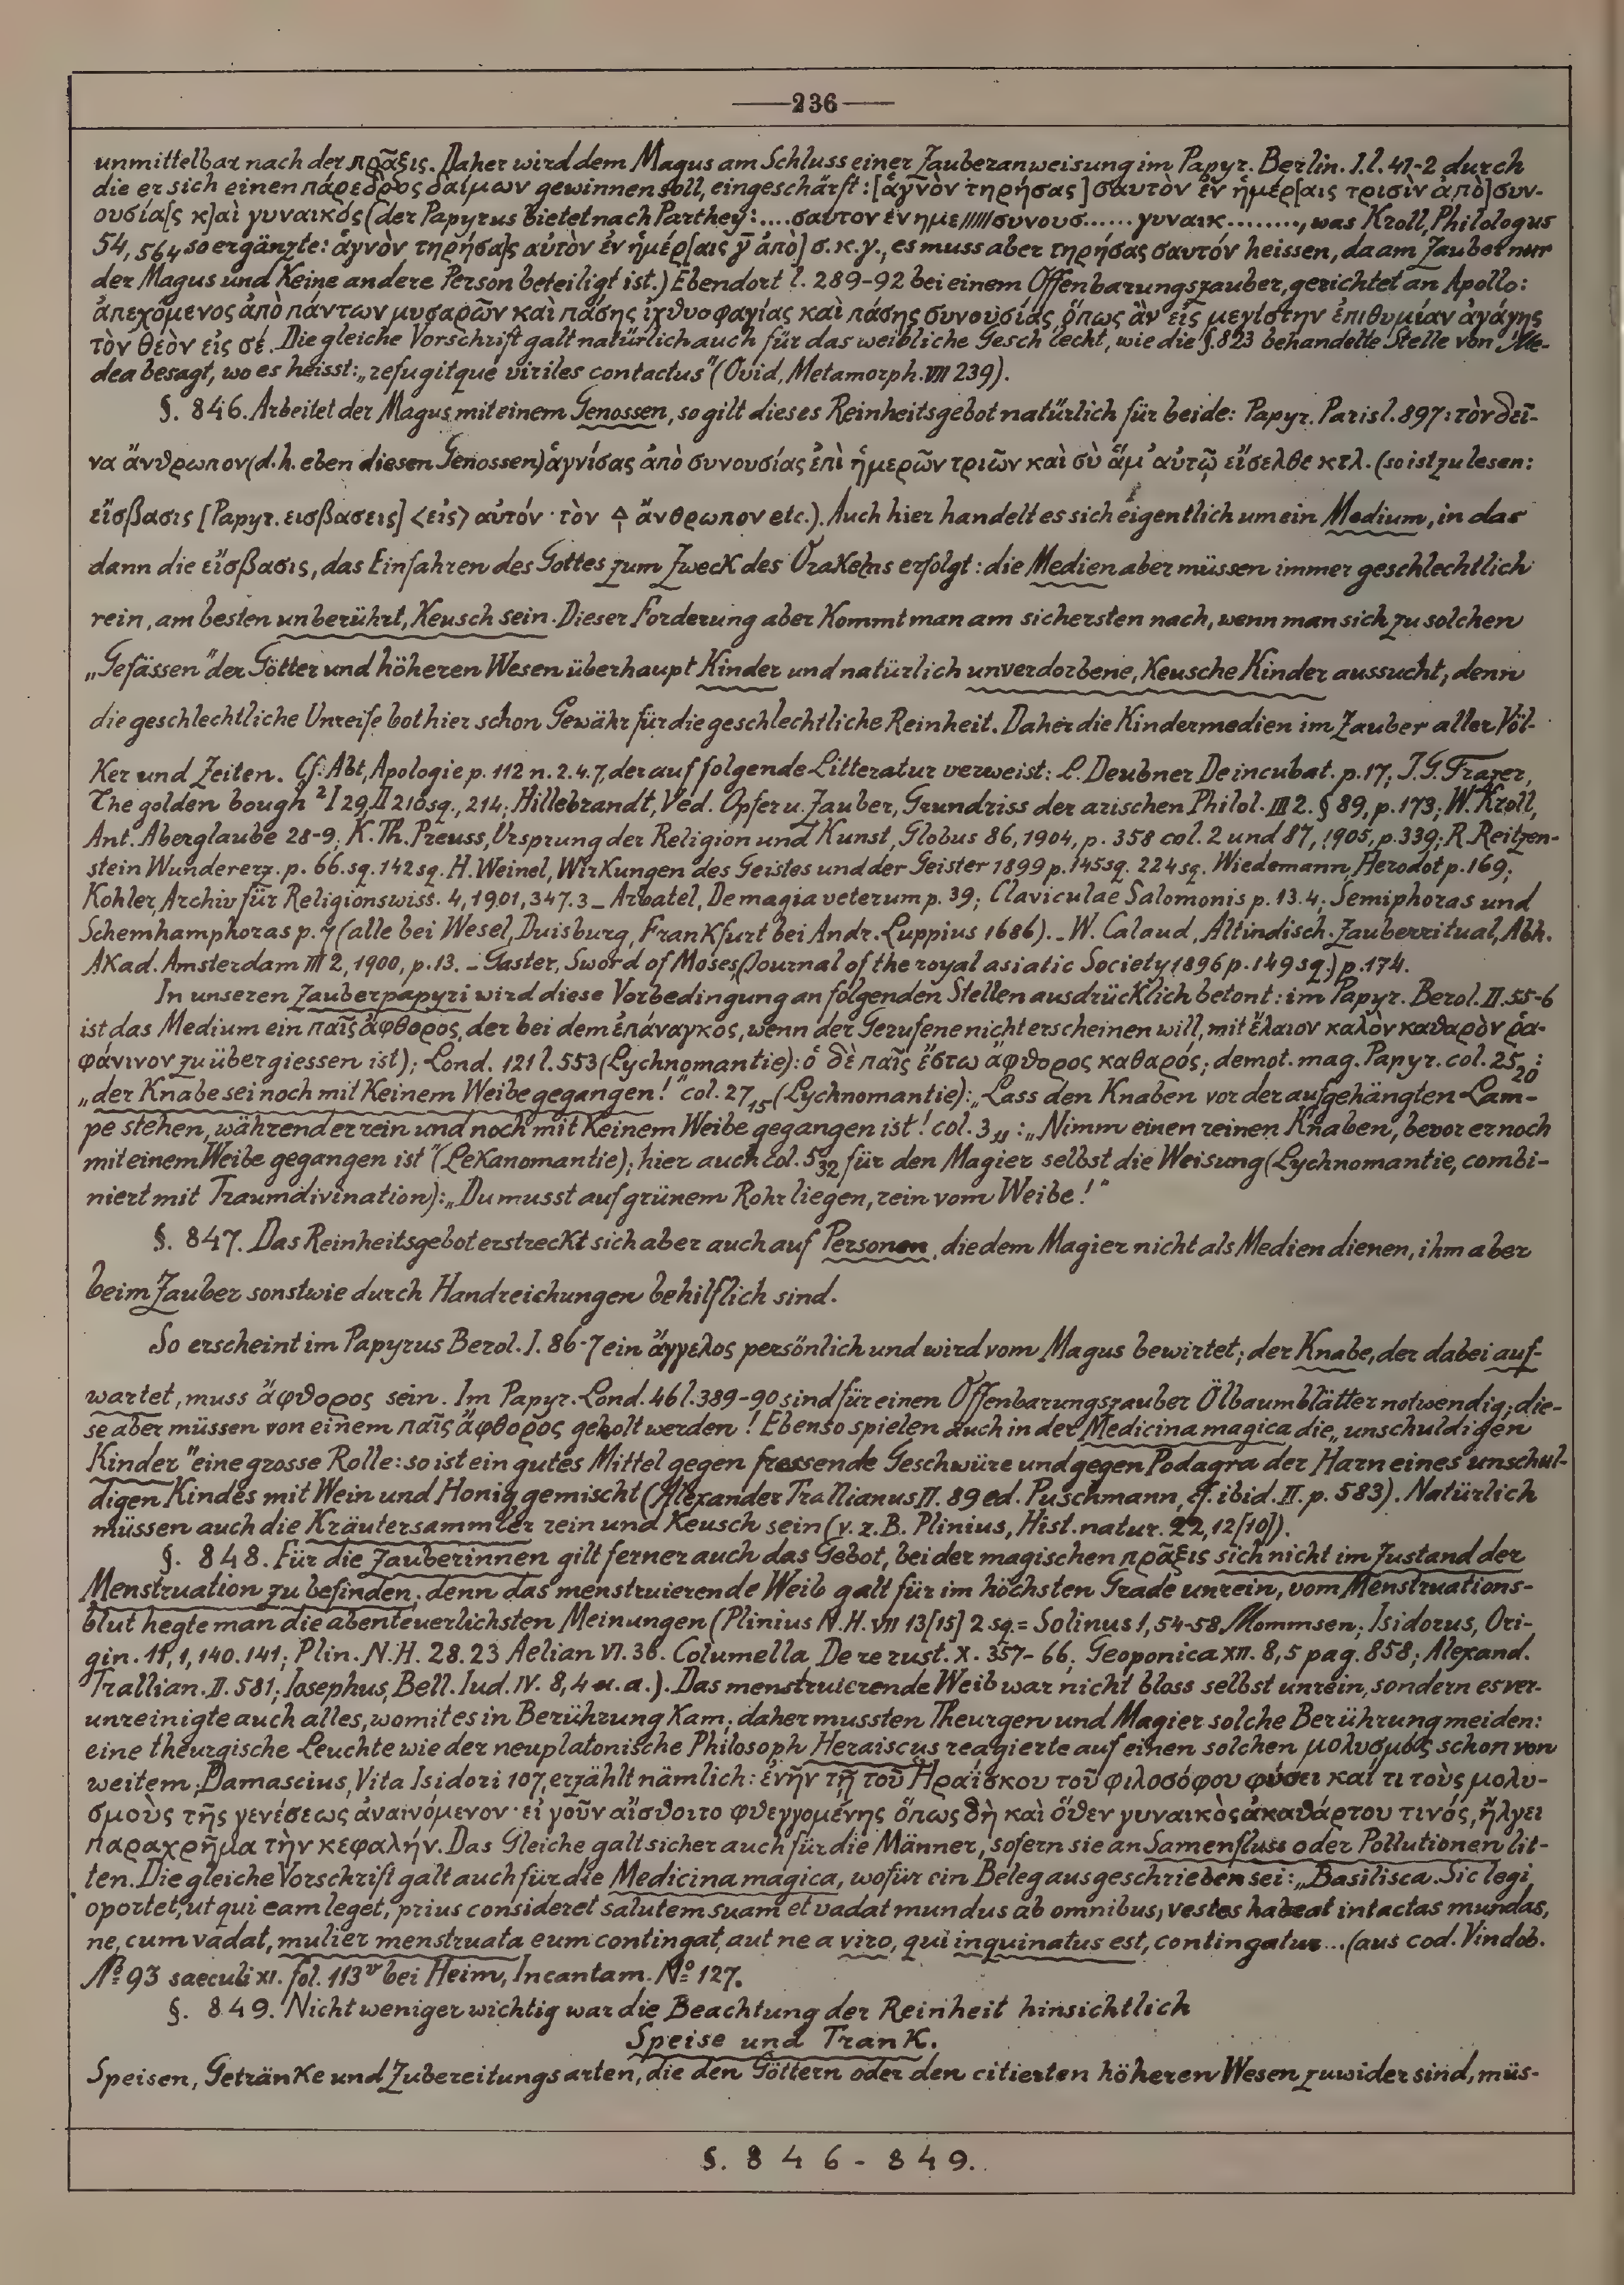 236
unmittelbar nach der πρᾶξις. Daher wird dem Magus am Schluss einer Zauberanweisung im Papyr. Berlin. I. l. 41-2 durch
die er sich einen πάρεδρος δαίμων gewinnen soll, eingeschärft: [ἁγνὸν τηρήσας] σαυτὸν ἐν ἡμέρ[αις τρισὶν ἀπὸ] συν-
ουσία[ς κ]αὶ γυναικός (der Papyrus bietet nach Parthey: .... σαυτον ἐν ημε///// συνουσ...... γυναικ........, was Kroll, Philologus
54, 564 so ergänzte: ἁγνὸν τηρήσα]ς αὑτὸν ἐν ἡμέρ[αις γ̅ ἀπὸ] σ. κ. γ., es muss aber τηρήσας σαυτόν heissen, da am Zauber nur
der Magus und keine andere Person beteiligt ist.) Ebendort l. 289-92 bei einem Offenbarungszauber, gerichtet an Apollo:
ἀπεχόμενος ἀπὸ πάντων μυσαρῶν καὶ πάσης ἰχθυοφαγίας καὶ πάσης συνουσίας, ὅπως ἂν εἰς μεγίστην ἐπιθυμίαν ἀγάγῃς
τὸν θεὸν εἰς σέ. Die gleiche Vorschrift galt natürlich auch für das weibliche Geschlecht, wie die §. 823 behandelte Stelle von Me-
dea besagt, wo es heisst: „refugitque viriles contactus" (Ovid, Metamorph. VII 239).
§. 846. Arbeitet der Magus mit einem Genossen, so gilt dieses Reinheitsgebot natürlich für beide: Papyr. Paris l. 897: τὸν δεῖ-
να ἄνθρωπον (d. h. eben diesen Genossen) ἁγνίσας ἀπὸ συνουσίας ἐπὶ ἡμερῶν τριῶν καὶ σὺ ἅμ' αὐτῷ εἴσελθε κτλ. (so ist zu lesen:
εἴσβασις [Papyr. εισβασεις] <εἰς> αὐτόν · τὸν ἄνθρωπον etc.). Auch hier handelt es sich eigentlich um ein Medium, in das
dann die εἴσβασις, das Einfahren des Gottes zum Zweck des Orakelns erfolgt: die Medien aber müssen immer geschlechtlich
rein, am besten unberührt, keusch sein. Dieser Forderung aber kommt man am sichersten nach, wenn man sich zu solchen
„Gefässen" der Götter und höheren Wesen überhaupt Kinder und natürlich unverdorbene, keusche Kinder aussucht, denn
die geschlechtliche Unreife bot hier schon Gewähr für die geschlechtliche Reinheit. Daher die Kindermedien im Zauber aller Völ-
ker und Zeiten. Cf. Abt, Apologie p. 112 n. 2. 4. 7, der auf folgende Litteratur verweist: L. Deubner De incubat. p. 17; J. G. Frazer,
The golden bough ²I 29, II 210 sq., 214; Hillebrandt, Ved. Opfer u. Zauber, Grundriss der arischen Philol. III 2. § 89, p. 173; W. Kroll,
Ant. Aberglaube 28-9. K. Th. Preuss, Ursprung der Religion und Kunst, Globus 86, 1904, p. 358 col. 2 und 87, 1905, p. 339; R. Reitzen-
stein Wundererz. p. 66. sq. 142 sq. H. Weinel, Wirkungen des Geistes und der Geister 1899 p. 145 sq. 224 sq. Wiedemann, Herodot p. 169;
Kohler, Archiv für Religionswiss. 4, 1901, 347. 3 _ Arbatel, De magia veterum p. 39; Claviculae Salomonis p. 13. 4; Semiphoras und
Schemhamphoras p. 7 (alle bei Wesel, Duisburg, Frankfurt bei Andr. Luppius 1686). _ W. Calaud, Altindisch. Zauberritual, Abh.
Akad. Amsterdam III 2, 1900, p. 13. _ Gaster, Sword of Moses (Journal of the royal asiatic Society 1896 p. 149 sq.) p. 174.
In unseren Zauberpapyri wird diese Vorbedingung an folgenden Stellen ausdrücklich betont: im Papyr. Berol. II. 55-6
ist das Medium ein παῖς ἄφθορος, der bei dem ἐπάναγκος, wenn der Gerufene nicht erscheinen will, mit ἔλαιον καλὸν καθαρὸν ῥα-
φάνινον zu übergiessen ist); Lond. 121 l. 553 (Lychnomantie): ὁ δὲ παῖς ἔστω ἄφθορος καθαρός; demot. mag. Papyr. col. 25, 20:
„der Knabe sei noch mit keinem Weibe gegangen!" col. 27 15 (Lychnomantie): „Lass den Knaben vor der aufgehängten Lam-
pe stehen, während er rein und noch mit keinem Weibe gegangen ist! col. 3 11: „Nimm einen reinen Knaben, bevor er noch
mit einem Weibe gegangen ist" (Lekanomantie); hier auch col. 5 32 für den Magier selbst die Weisung (Lychnomantie, combi-
niert mit Traumdivination): „Du musst auf grünem Rohr liegen, rein vom Weibe!"
§. 847. Das Reinheitsgebot erstreckt sich aber auch auf Personen, die dem Magier nicht als Medien dienen, ihm aber
beim Zauber sonstwie durch Handreichungen behilflich sind.
So erscheint im Papyrus Berol. I. 86-7 ein ἄγγελος persönlich und wird vom Magus bewirtet; der Knabe, der dabei auf-
wartet, muss ἄφθορος sein. Im Papyr. Lond. 46 l. 389-90 sind für einen Offenbarungszauber Ölbaumblätter notwendig; die-
se aber müssen von einem παῖς ἄφθορος geholt werden! Ebenso spielen auch in der Medicina magica die „unschuldigen
Kinder" eine grosse Rolle: so ist ein gutes Mittel gegen fressende Geschwüre und gegen Podagra der Harn eines unschul-
digen Kindes mit Wein und Honig gemischt (Alexander Trallianus II. 89 ed. Puschmann, cf. ibid. II. p. 583). Natürlich
müssen auch die Kräutersammler rein und keusch sein (v. z. B. Plinius, Hist. natur. 22, 12 [10]).
§. 848. Für die Zauberinnen gilt ferner auch das Gebot, bei der magischen πρᾶξις sich nicht im Zustand der
Menstruation zu befinden; denn das menstruierende Weib galt für im höchsten Grade unrein, vom Menstruations-
blut hegte man die abenteuerlichsten Meinungen (Plinius N. H. VII 13 [15] 2 sq. = Solinus 1, 54-58 Mommsen; Isidorus, Ori-
gin. 11, 1, 140. 141; Plin. N. H. 28. 23 Aelian VI. 36. Columella De re rust. X. 357-66; Geoponica XII. 8, 5 pag. 858; Alexand.
Trallian. II. 581; Iosephus, Bell. Iud. IV. 8, 4 u. a.). Das menstruierende Weib war nicht bloss selbst unrein, sondern es ver-
unreinigte auch alles, womit es in Berührung kam; daher mussten Theurgen und Magier solche Berührung meiden:
eine theurgische Leuchte wie der neuplatonische Philosoph Heraiscus reagierte auf einen solchen μολυσμός schon von
weitem; Damascius, Vita Isidori 107, erzählt nämlich: ἐνῆν τῇ τοῦ Ἡραΐσκου τοῦ φιλοσόφου φύσει καί τι τοὺς μολυ-
σμοὺς τῆς γενέσεως ἀναινόμενον · εἰ γοῦν αἴσθοιτο φθεγγομένης ὅπως δὴ καὶ ὅθεν γυναικὸς ἀκαθάρτου τινός, ἤλγει
παραχρῆμα τὴν κεφαλήν. Das Gleiche galt sicher auch für die Männer, sofern sie an Samenfluss oder Pollutionen lit-
ten. Die gleiche Vorschrift galt auch für die Medicina magica, wofür ein Beleg ausgeschrieben sei: „Basilisca. Sic legi
oportet, ut qui eam leget, prius consideret salutem suam et vadat mundus ab omnibus, vestes habeat intactas mundas,
ne, cum vadat, mulier menstruata eum contingat, aut ne a viro, qui inquinatus est, contingatur... (aus cod. Vindob.
Nº 93 saeculi XI. fol. 113ᵛ bei Heim, Incantam. Nº 127.
§. 849. Nicht weniger wichtig war die Beachtung der Reinheit hinsichtlich
Speise und Trank.
Speisen, Getränke und Zubereitungsarten, die den Göttern oder den citierten höheren Wesen zuwider sind, müs-
§. 846-849.